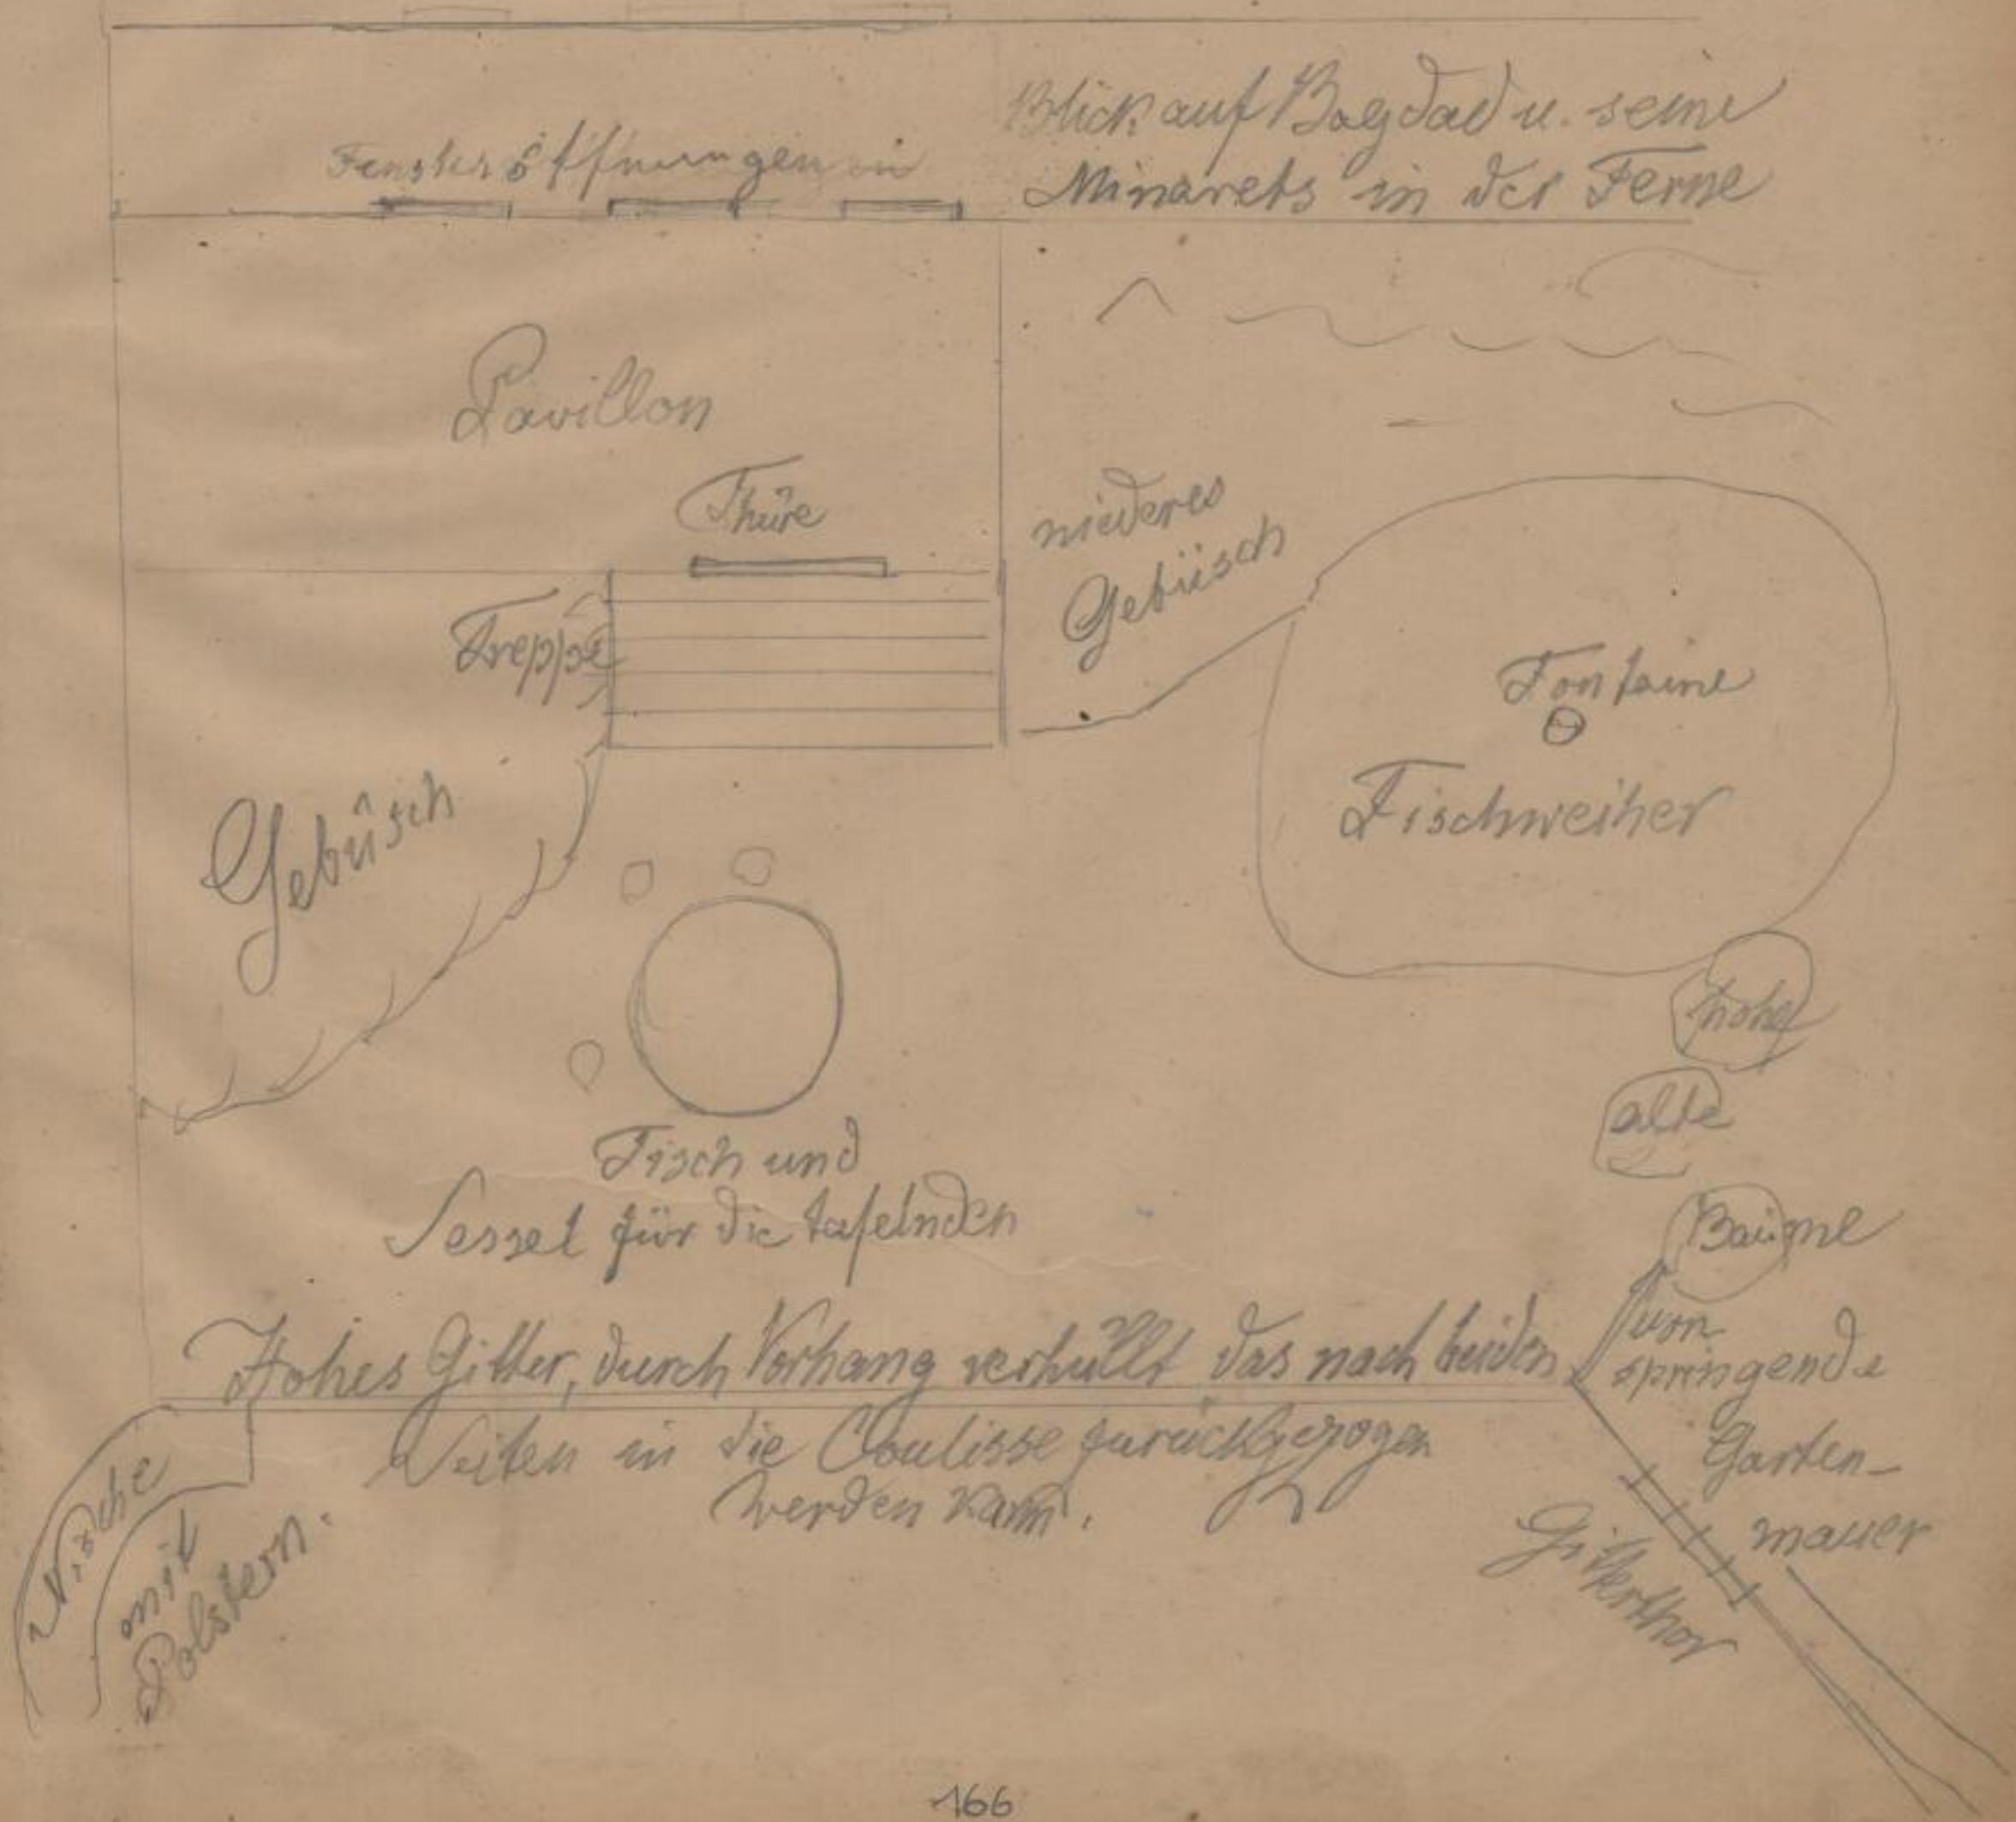 Blick auf Bagdad u. seine
Minarets in der Ferne
Fensteröffnungen
Pavillon
Thüre
niederes
Gebüsch
Treppe
Fontaine
Fischweiher
Gebüsch
hohe
alte
Bäume
Tisch und
Sessel für die tafelnden
Hohes Gitter, durch Vorhang verhüllt das nach beiden
Seiten in die Coulisse zurückgezogen
werden kann.
vor
springende
Garten-
mauer
Gitterthor
Nische
mit
Polstern.
166